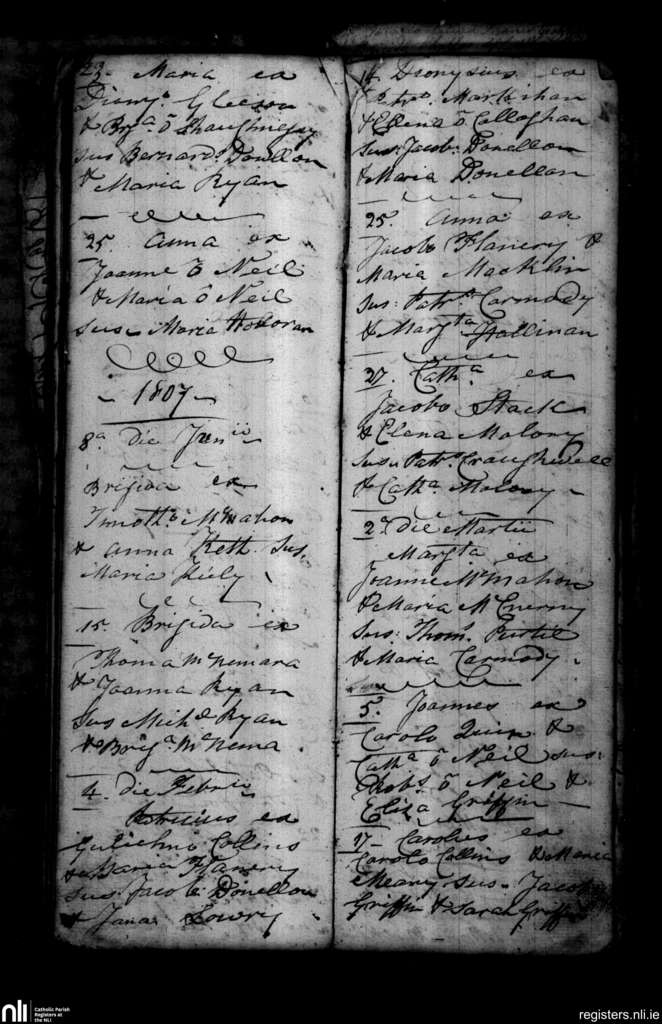 23. Maria ex
Diony. Gleeson
& Brga ō Shaughnesy
sus Bernardo Donellon
& Maria Ryan
25. Anna ex
Joanne ō Neil
& Maria ō Neil
sus Maria
1807
8a die
Brigida ex
Timotho McMahon
& Anna Keth. Sus.
Maria Kiely
15. Brigida ex
Thoma McNemara
& Joanna Ryan
sus Michl Ryan
& Briga McNema.
4. die Febrii
ex
Gulielmo Collins
& Maria Flanery
sus. Jacob: Donellon
& Jana Lowry
14 Dionysius ex
Patro. Markahan
& Elena ō Callaghan
sus: Jacob: Donellon
& Maria Donellan
25. Anna ex
Jacobo Flanery &
Maria Macklin
sus: Patr. Carmody
& Margta Hallinan
27. Catha ex
Jacobo Stack
& Elena Malony
sus: Patr. Craughwell
& Catha Malony
2a die Martii
Margta ex
Joanne McMahon
& Maria McEnerny
sus: Thom.
& Maria Carmody.
5. Joannes ex
Carolo Quin &
Catha ō Neil sus:
ō Neil &
Eliza Griffin
17 Carolus ex
Carolo Collins & Maria
Meany sus. Jacob
Griffin & Sarah Griffin
nli
Catholic Parish
Registers at
the NLI
registers.nli.ie